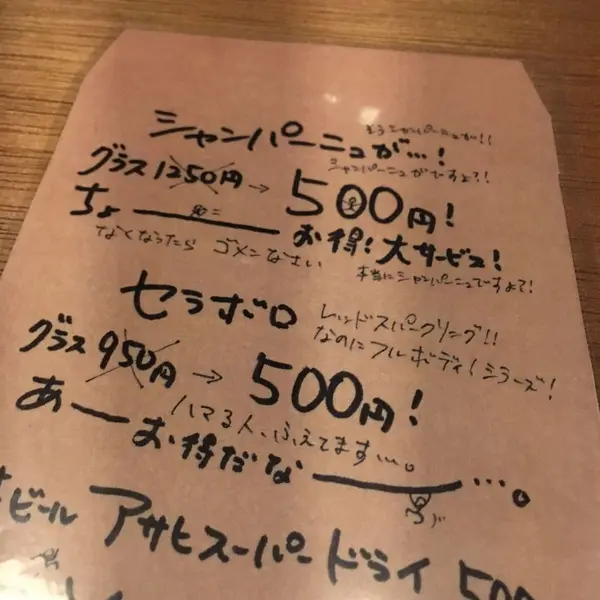 そうシャンパーニュが!!
シャンパーニュが…!
シャンパーニュがですよ?!
グラス 1250円 → 500円!
ちょ――― お得! 大サービス!
なくなったら ゴメンなさい
本当にシャンパーニュですよで!
セラボロ
レッドスパークリング!!
なのにフルボディ!シラーズ!
グラス 950円 → 500円!
ハマる人、ふえてます…。
あーお得だな―――…。
ビール アサヒスーパードライ 500